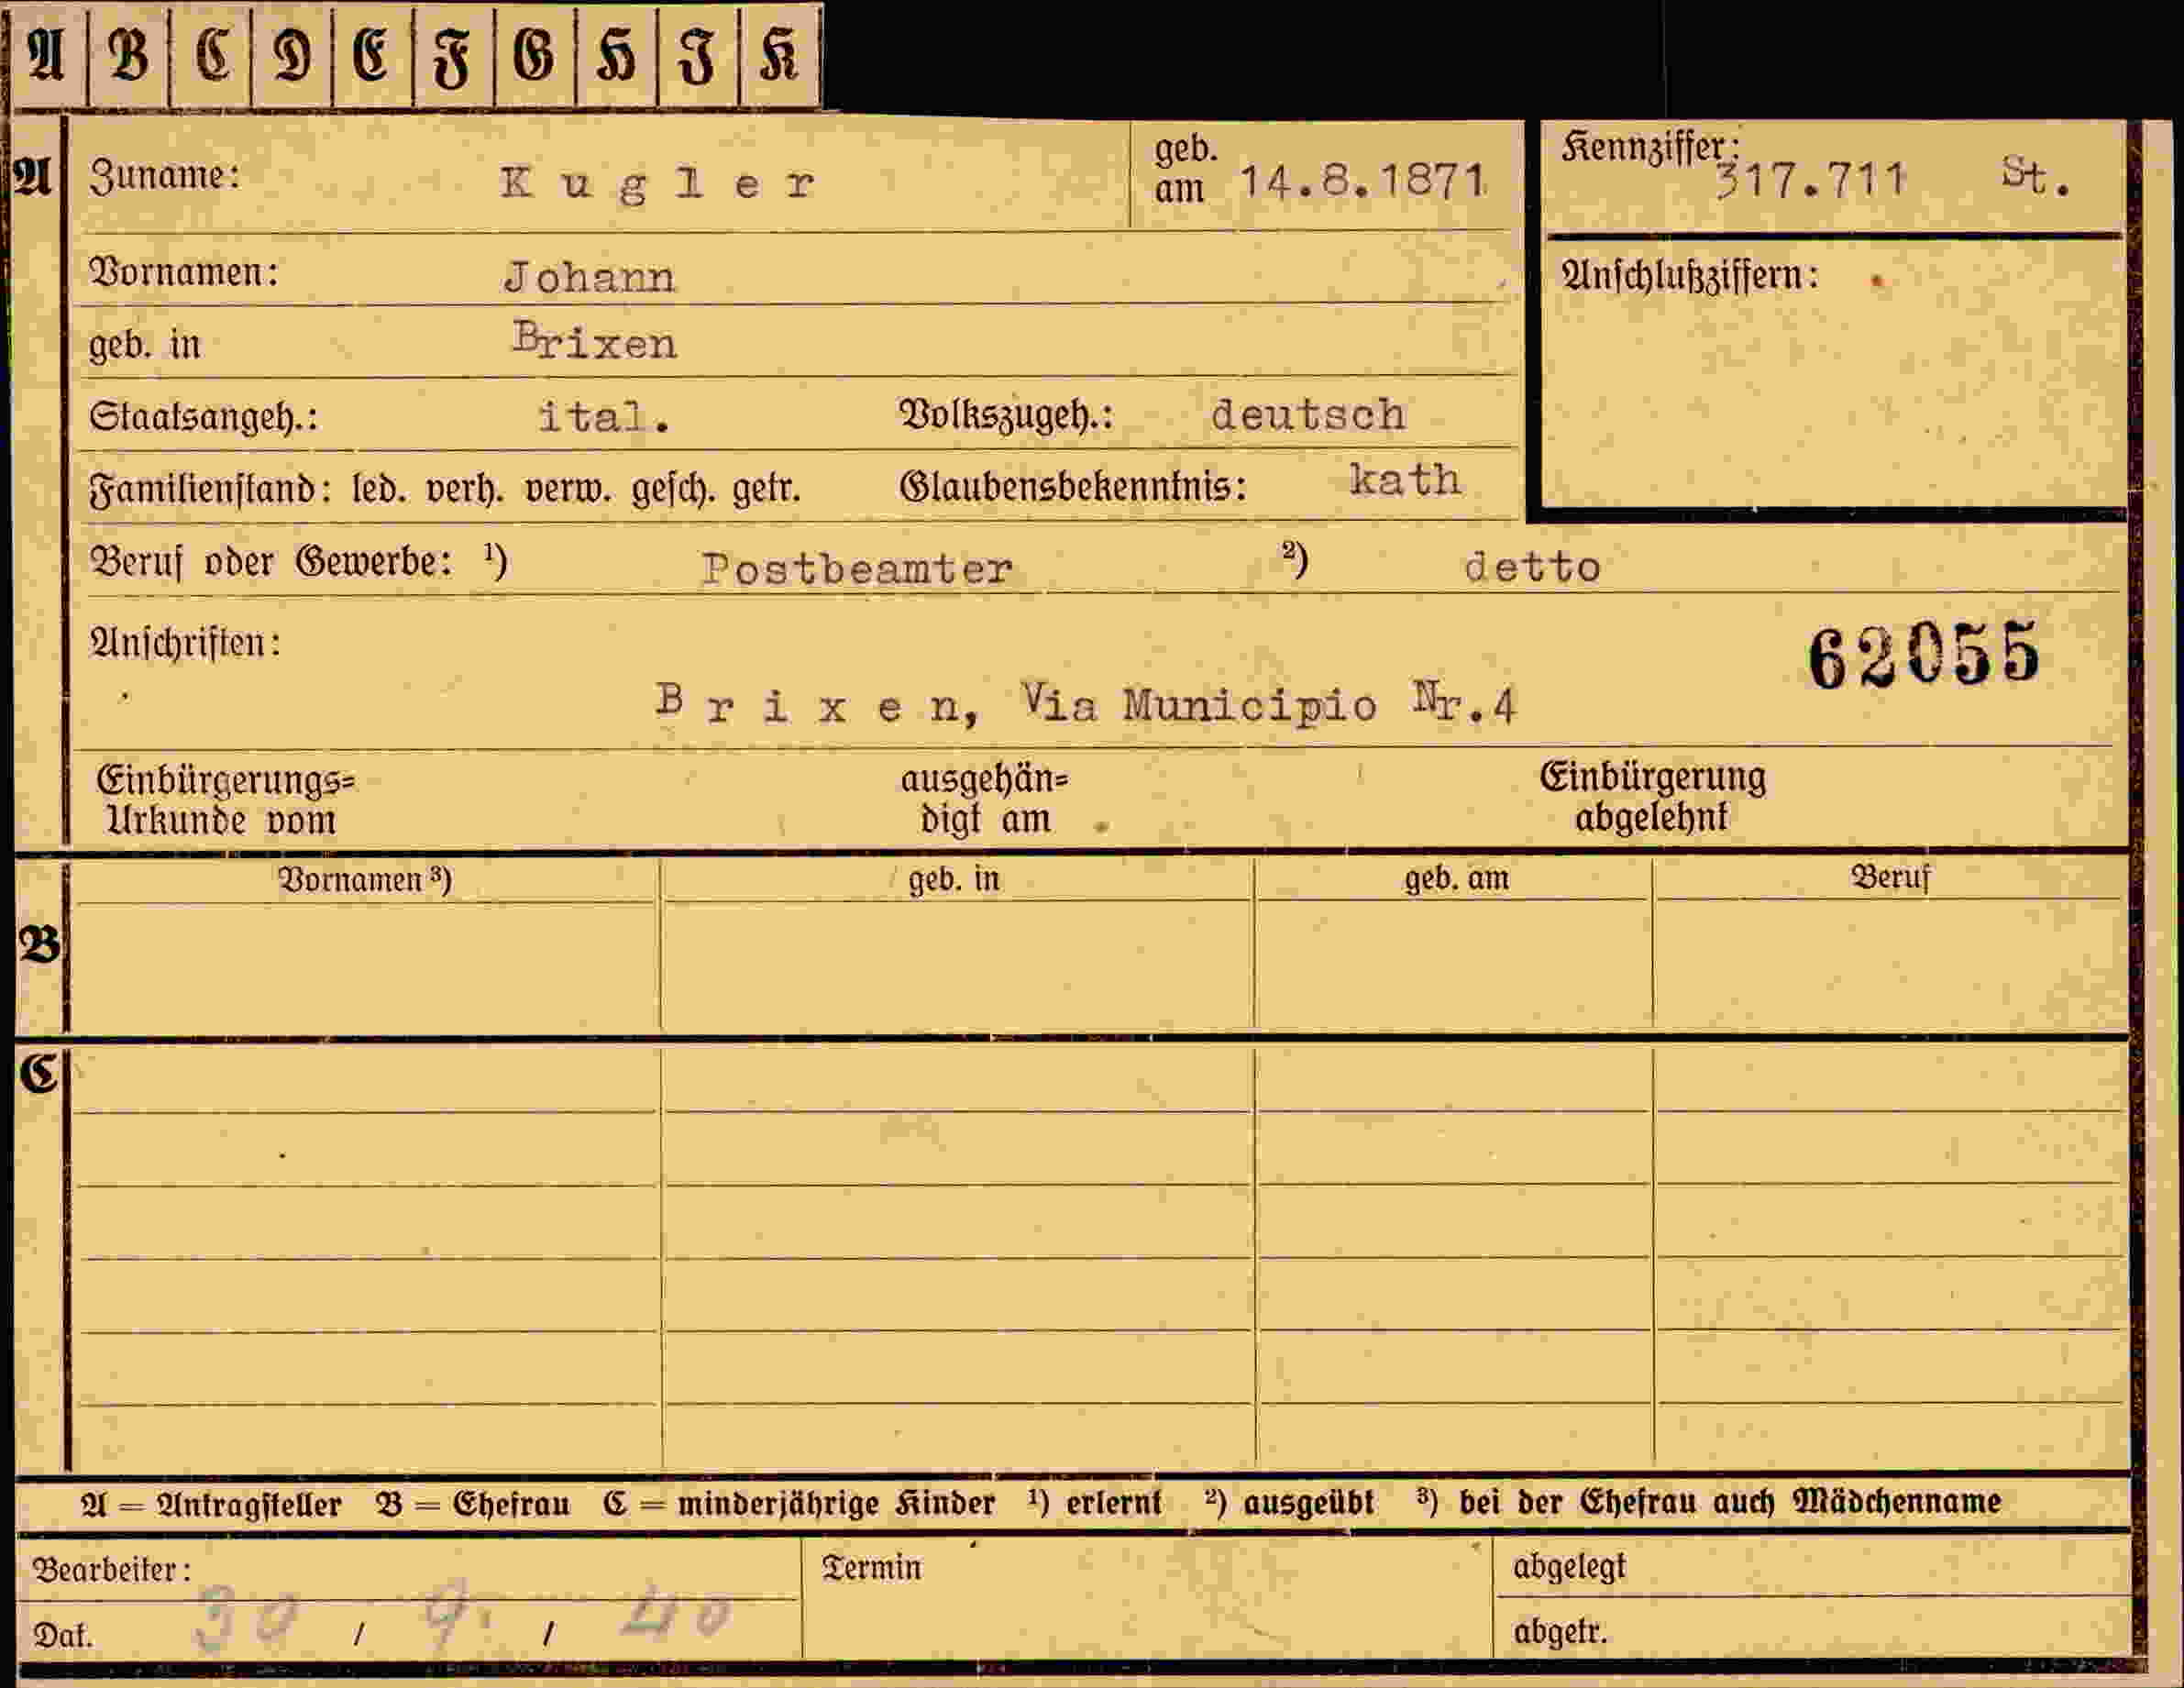 A B C D E F G H I K
A Zuname: Kugler geb. am 14.8.1871 Kennziffer: 317.711 St.
Vornamen: Johann Anschlußziffern:
geb. in Brixen
Staatsangeh.: ital. Volkszugeh.: deutsch
Familienstand: led. verh. verw. gesch. getr. Glaubensbekenntnis: kath
Beruf oder Gewerbe: ¹) Postbeamter ²) detto
Anschriften: 62055
Brixen, Via Municipio Nr.4
Einbürgerungs= ausgehän= Einbürgerung
Urkunde vom digt am abgelehnt
Vornamen ³) geb. in geb. am Beruf
B
C
A = Antragsteller B = Ehefrau C = minderjährige Kinder ¹) erlernt ²) ausgeübt ³) bei der Ehefrau auch Mädchenname
Bearbeiter: Termin abgelegt
Dat. 30 / 9. / 40 abgetr.